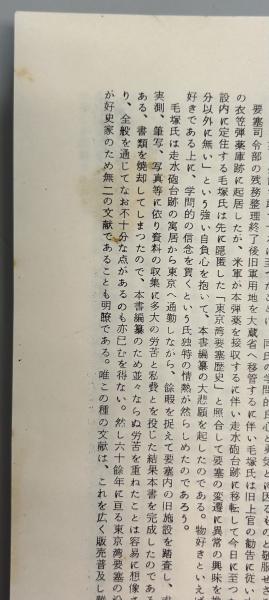 要塞司令部の残務整理終了後旧軍用地を大蔵省へ移管するに伴い毛塚氏は旧上官の勧告に従い
の衣笠弾薬庫跡に起居したが、米軍が本弾薬を接収するに伴い走水砲台跡に移転して今日に至つ
設内に定住する毛塚氏は先に隠匿した「東京湾要塞歴史」と照合して要塞の変遷に異常の興味を
分以外に無い」という強い自負心を抱いて、本書編纂の大悲願を起したのである。物好きといえば
好きである上に、学問的の信念を貫くという氏独特の情熱が然らしめたのであろう。
毛塚氏は走水砲台跡の寓居から東京へ通勤しながら、余暇を捉えて要塞内の旧施設を踏査し、
実測、筆写、写真等に依り資料の収集に多大の労苦と私費とを投じた結果本書を完成したのであ
ある、書類を焼却してしまつたので、本書編纂のため並々ならぬ労苦を重ねたことは容易に想像
り、全般を通じてなお不十分な点があるのも亦已むを得ない。然し六十余年に亘る東京湾要塞の
が好史家のため無二の文献であることも明瞭である。唯この種の文献は、これを広く販売普及し